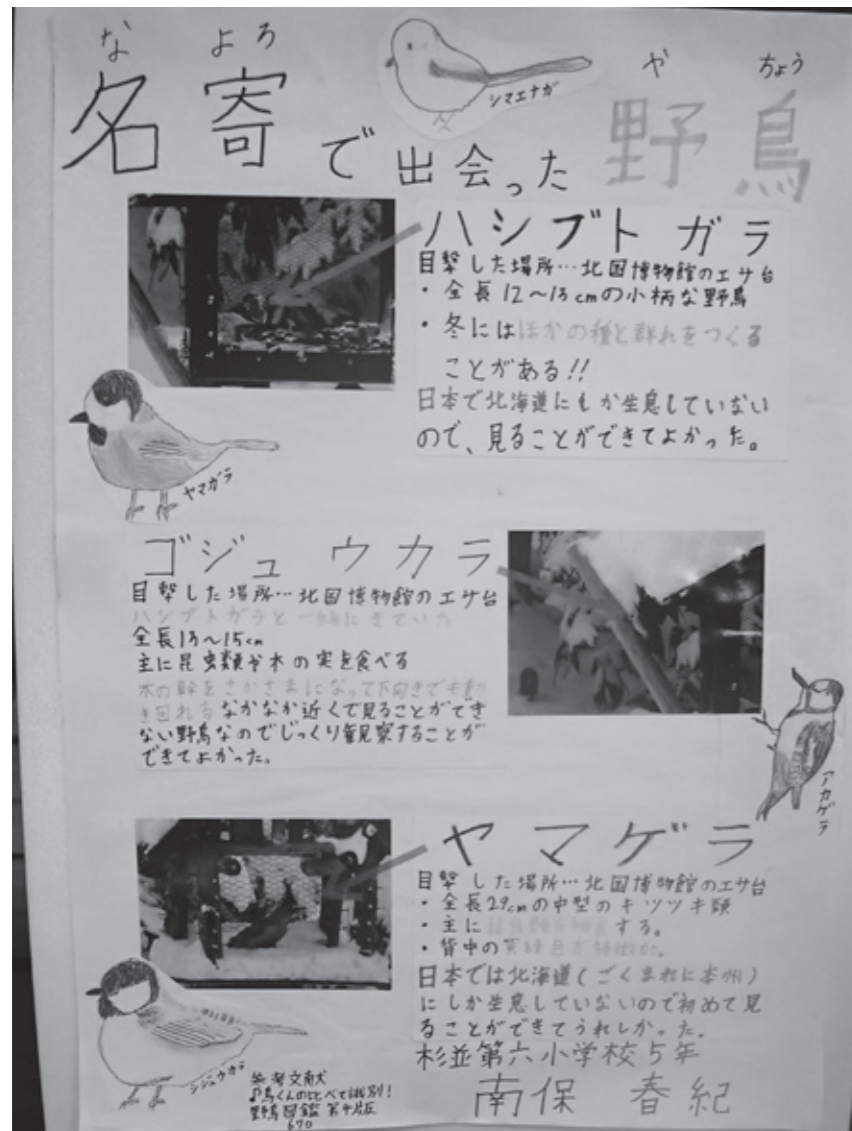 なよろ
やちょう
名寄で出会った野鳥
シマエナガ
ハシブトガラ
目撃した場所…北国博物館のエサ台
・全長12〜13cmの小柄な野鳥
・冬にはほかの種と群れをつくる
ことがある!!
日本で北海道にしか生息していない
ので、見ることができてよかった。
ヤマガラ
ゴジュウカラ
目撃した場所…北国博物館のエサ台
ハシブトガラと一緒にきていた
全長13〜15cm
主に昆虫類や木の実を食べる
木の幹をさかさまになって下向きでも動
き回れるなかなか近くで見ることができ
ない野鳥なのでじっくり観察することが
できてよかった。
アカゲラ
ヤマゲラ
目撃した場所…北国博物館のエサ台
・全長29cmの中型のキツツキ類
・主に する。
・背中の黄緑色が特徴的。
日本では北海道(ごくまれに本州)
にしか生息していないので初めて見
ることができてうれしかった。
シジュウカラ
杉並第六小学校5年
南保 春紀
参考文献
♪鳥くんの比べて識別!
野鳥図鑑 670